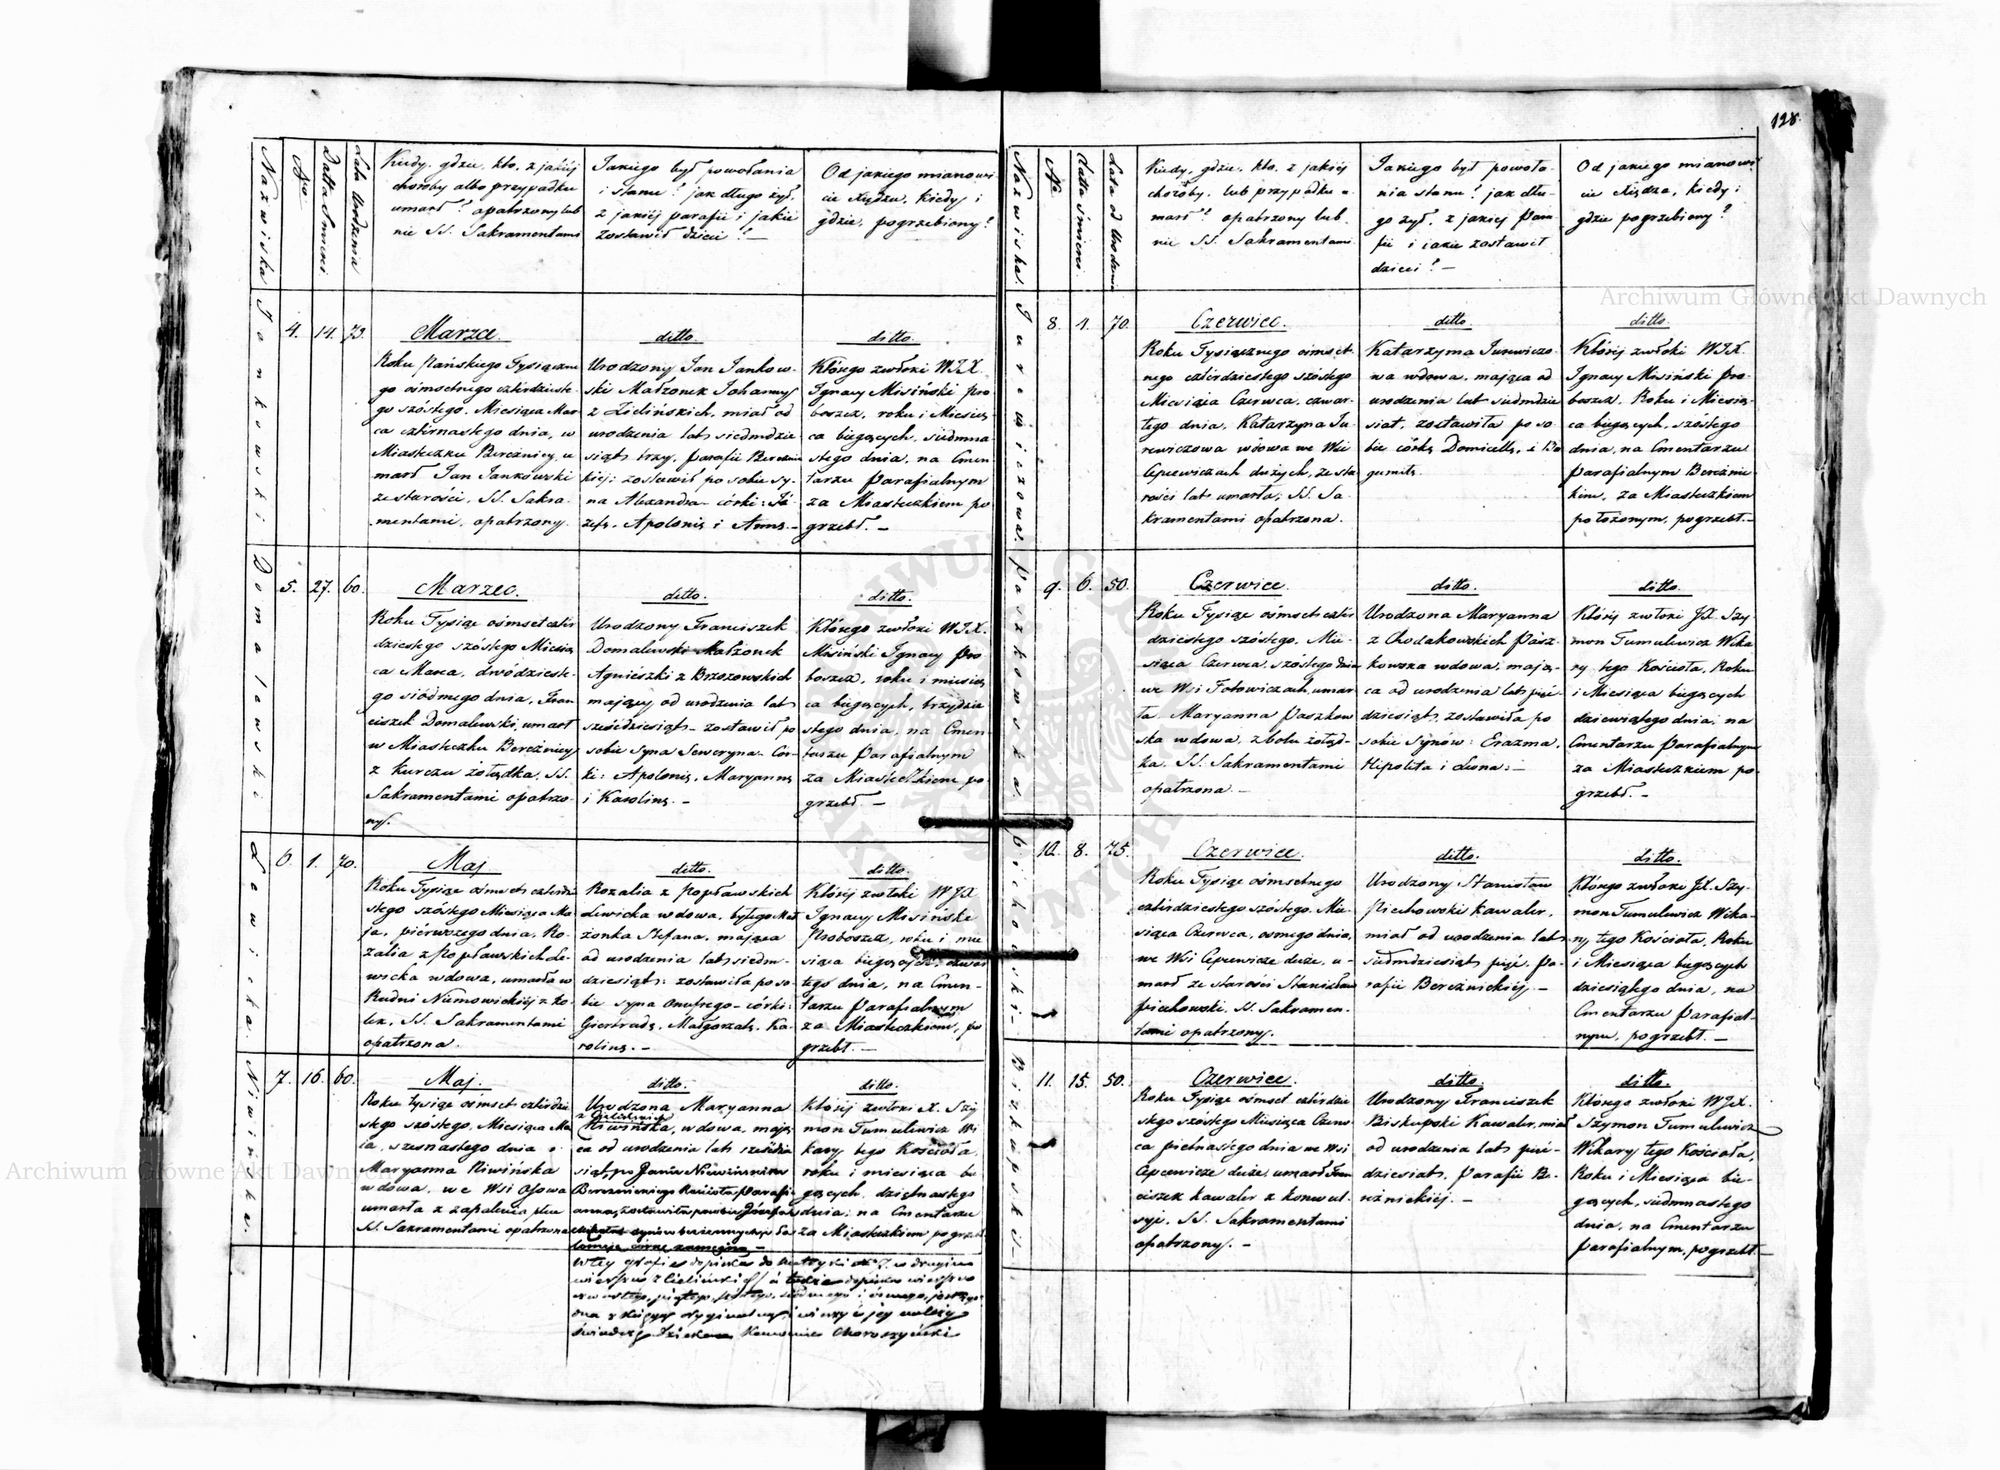 128.
Nazwiska
Nro
Datta Śmierci
Lata Urodzenia
Kiedy, gdzie, kto, z jakiéj
choroby albo przypadku
umarł? opatrzony lub
nie SS. Sakramentami
Jakiego był powołania
i stanu? jak długo żył,
z jakiéj parafii i jakie
zostawił dzieci? —
Od jakiego mianowi
cie Xiędza, kiedy i
gdzie, pogrzebiony?
Jankowski
4. 14. 73.
Marzec.
Roku Pańskiego Tysiączne
go ośmsetnego czterdzieste-
go szóstego, Miesiąca Mar
ca czternastego dnia, w
Miasteczku Bereźnicy, u
marł Jan Jankowski
ze starości, SS. Sakra-
mentami, opatrzony.
ditto.
Urodzony Jan Janków-
ski Małżonek Johanny
z Zielińskich, miał od
urodzenia lat siedmdzie
siąt trzy, parafii Bereźnic
kiéj; zostawił po sobie sy-
na Alexandra córki: Jó
zefę, Apolonię i Annę. —
ditto.
Którego zwłoki WJX.
Ignacy Misiński pro
boszcz, roku i Miesią
ca bieżących, siedmna
stego dnia, na Cmen
tarzu Parafialnym
za Miasteczkiem po
grzebł. —
Domalewski
5. 27. 60.
Marzec.
Roku Tysiąc ośmset czter
dziestego szóstego Miesią
ca Marca, dwódzieste-
go siódmego dnia, Fran
ciszek Domalewski, umarł
w Miasteczku Bereźnicy
z kurczu żołądka, SS.
Sakramentami opatrzo-
ny.
ditto.
Urodzony Franciszek
Domalewski Małżonek
Agnieszki z Brzozowskich
mający od urodzenia lat
sześćdziesiąt — zostawił po
sobie syna Seweryna. Cór-
ki: Apolonię, Maryannę
i Karolinę. —
ditto.
Którego zwłoki WJX.
Misiński Ignacy Pro
boszcz, roku i miesią
ca bieżących, trzydzie
stego dnia, na Cmen
tarzu Parafialnym
za Miasteczkiem po
grzebł —
Lewicka.
6. 1. 70.
Maj
Roku Tysiąc ośmset czterdzie
stego szóstego Miesiąca Ma
ja, pierwszego dnia, Ro-
zalia z Popławskich Le-
wicka wdowa, umarła w
Rudni Niemowickiéj z ko-
lek, SS. Sakramentami
opatrzona.
ditto.
Rozalia z Popławskich
Lewicka wdowa, byłego Mał
żonka Stefana, mająca
od urodzenia lat siedm-
dziesiąt: zostawiła po so-
bie syna Onufrego — córki:
Giertrudę, Małgorzatę, Ka-
rolinę. —
ditto.
Któréj zwłoki WJX
Ignacy Misiński
Proboszcz, roku i mie
siąca bieżących, czwar
tego dnia, na Cmen-
tarzu Parafialnym
za Miasteczkiem, po
grzebł. —
Niwińska.
7. 16. 60.
Maj.
Roku tysiąc ośmset czterdzie
stego szóstego, Miesiąca Ma
ia, szesnastego dnia
Maryanna Niwińska
wdowa, we Wsi Osowa
umarła z zapalenia płuc
SS. Sakramentami opatrzona
ditto.
Urodzona Maryanna
z Zielińskich
Niwińska, wdowa, mają
ca od urodzenia lat sześćdzie
siąt, po Janie Niwińskim
Bereznickiego Kościoła Parafi-
anna, zostawiła
W tey grafie dopisek do Metryki N 7. w drugim
wierszu z Zielińskich, a także dopisek wierszu
czwartego, piątego, szóstego, siódmego i ósmego, jest zgo
dna z Xięgą oryginalną i wierzyć jey należy
świadczę Dziekan Choroszyński
ditto.
Któréj zwłoki X. Szy
mon Tumulewicz Wi
kary tego Kościoła,
roku i miesiąca bie
żących, dziewiętnastego
dnia; na Cmentarzu
za Miasteczkiem pogrzebł
Nazwiska.
Nro
datta śmierci.
Lata od Urodzenia
Kiedy, gdzie, kto, z jakiéj
choroby, lub przypadku u-
marł? opatrzony lub
nie SS. Sakramentami
Jakiego był powoła-
nia stanu? jak dłu-
go żył, z jakiéj Para-
fii i jakie zostawił
dzieci? —
Od jakiego mianowi
cie Xiędza, kiedy i
gdzie pogrzebiony?
Jurewiczowa.
8. 4. 70.
Czerwiec.
Roku Tysiącznego ośmset-
nego czterdziestego szóstego
Miesiąca Czerwca, czwar-
tego dnia, Katarzyna Ju-
rewiczowa wdowa we Wsi
Cepcewiczach dużych, ze sta-
rości lat umarła, SS. Sa-
kramentami opatrzona.
ditto.
Katarzyna Jurewiczo-
wa wdowa, mająca od
urodzenia lat siedmdzie
siąt, zostawiła po so-
bie córkę Domicellę, i Bo
gumiłę.
ditto.
Któréj zwłoki WJX.
Ignacy Misiński Pro-
boszcz, Roku i Miesią-
ca bieżących, szóstego
dnia, na Cmentarzu
Parafialnym Bereźnic
kim, za Miasteczkiem
położonym, pogrzebł. —
Paszkowska.
9. 6. 50.
Czerwiec.
Roku Tysiąc ośmset czter
dziestego szóstego, Mie-
siąca Czerwca, szóstego dnia
we Wsi Fotowiczach, umar-
ła Maryanna Paszkow
ska wdowa, z bolu żołąd-
ka, SS. Sakramentami
opatrzona —
ditto.
Urodzona Maryanna
z Chodakowskich Pasz-
kowska wdowa, mają-
ca od urodzenia lat pięć-
dziesiąt, zostawiła po
sobie synów: Erazma,
Hipolita i Leona: —
ditto.
Któréj zwłoki JX. Szy-
mon Tumulewicz Wika
ry, tego Kościoła, Roku
i Miesiąca bieżących
dziewiątego dnia; na
Cmentarzu Parafialnym
za Miasteczkiem po-
grzebł. —
Piechowski —
10. 8. 75.
Czerwiec.
Roku Tysiąc ośmsetnego
czterdziestego szóstego, Mie-
siąca Czerwca, osmego dnia,
we Wsi Cepcewicze duże, u-
marł ze starości Stanisław
Piechowski, SS. Sakramen-
tami opatrzony.
ditto.
Urodzony Stanisław
Piechowski kawaler,
miał od urodzenia lat
siedmdziesiąt pięć, Pa-
rafii Bereznickiéj. —
ditto.
Którego zwłoki JX. Szy-
mon Tumulewicz Wika-
ry, tego Kościoła, Roku
i Miesiąca bieżących
dziesiątego dnia, na
Cmentarzu Parafial-
nym, pogrzebł. —
Biskupski.
11. 15. 50.
Czerwiec.
Roku Tysiąc ośmset czterdzie
stego szóstego Miesiąca Czerw-
ca piętnastego dnia we Wsi
Cepcewicze duże, umarł Fran
ciszek kawaler z konwul-
syi, SS. Sakramentami
opatrzony. —
ditto.
Urodzony Franciszek
Biskupski Kawaler, miał
od urodzenia lat pięć-
dziesiąt, Parafii Be-
reźnickiéj. —
ditto.
Którego zwłoki WJX.
Szymon Tumulewicz
Wikary tego Kościoła,
Roku i Miesiąca bie-
żących, siedmnastego
dnia, na Cmentarzu
Parafialnym, pogrzebł. —
Archiwum Główne Akt Dawnych
Archiwum Główne Akt Dawnych
ARCHIWUM GŁÓWNE AKT DAWNYCH